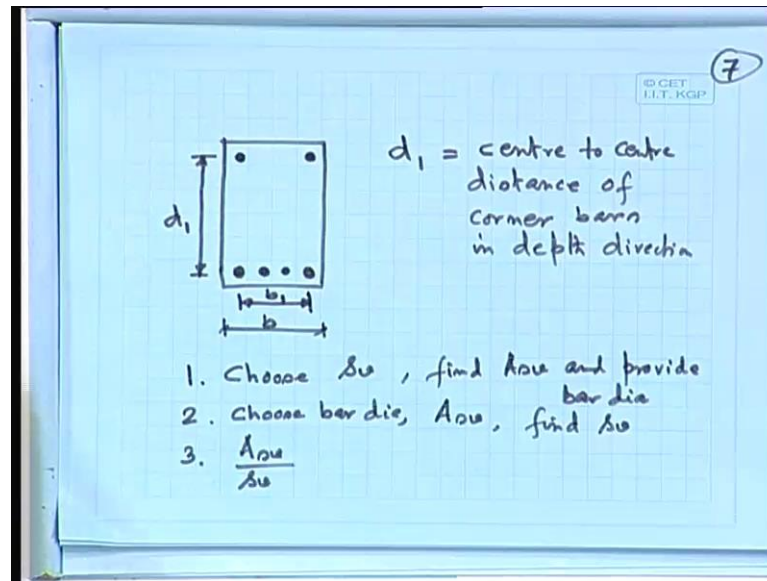 7
© CET
I.I.T. KGP
d₁ = centre to centre
distance of
corner bars
in depth direction
d₁
b₁
b
1. Choose Sv, find Asv and provide
bar dia
2. Choose bar die, Asv, find Sv
3. Asv
Sv